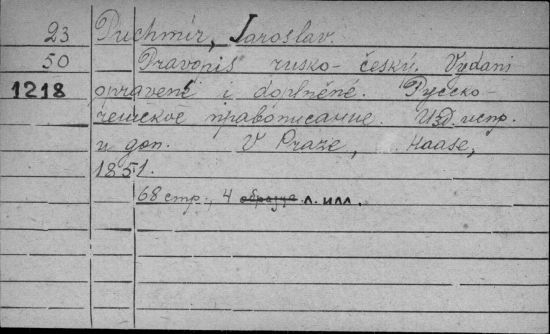 23 Puchmír, Jaroslav.
50 Pravopis rusko-český. Vydaní
1218 opravené i doplněné. Русско-
чешское правописание. Изд. испр.
и доп. V Praze, Haase,
1851.
68 стр., 4 образца л. илл.